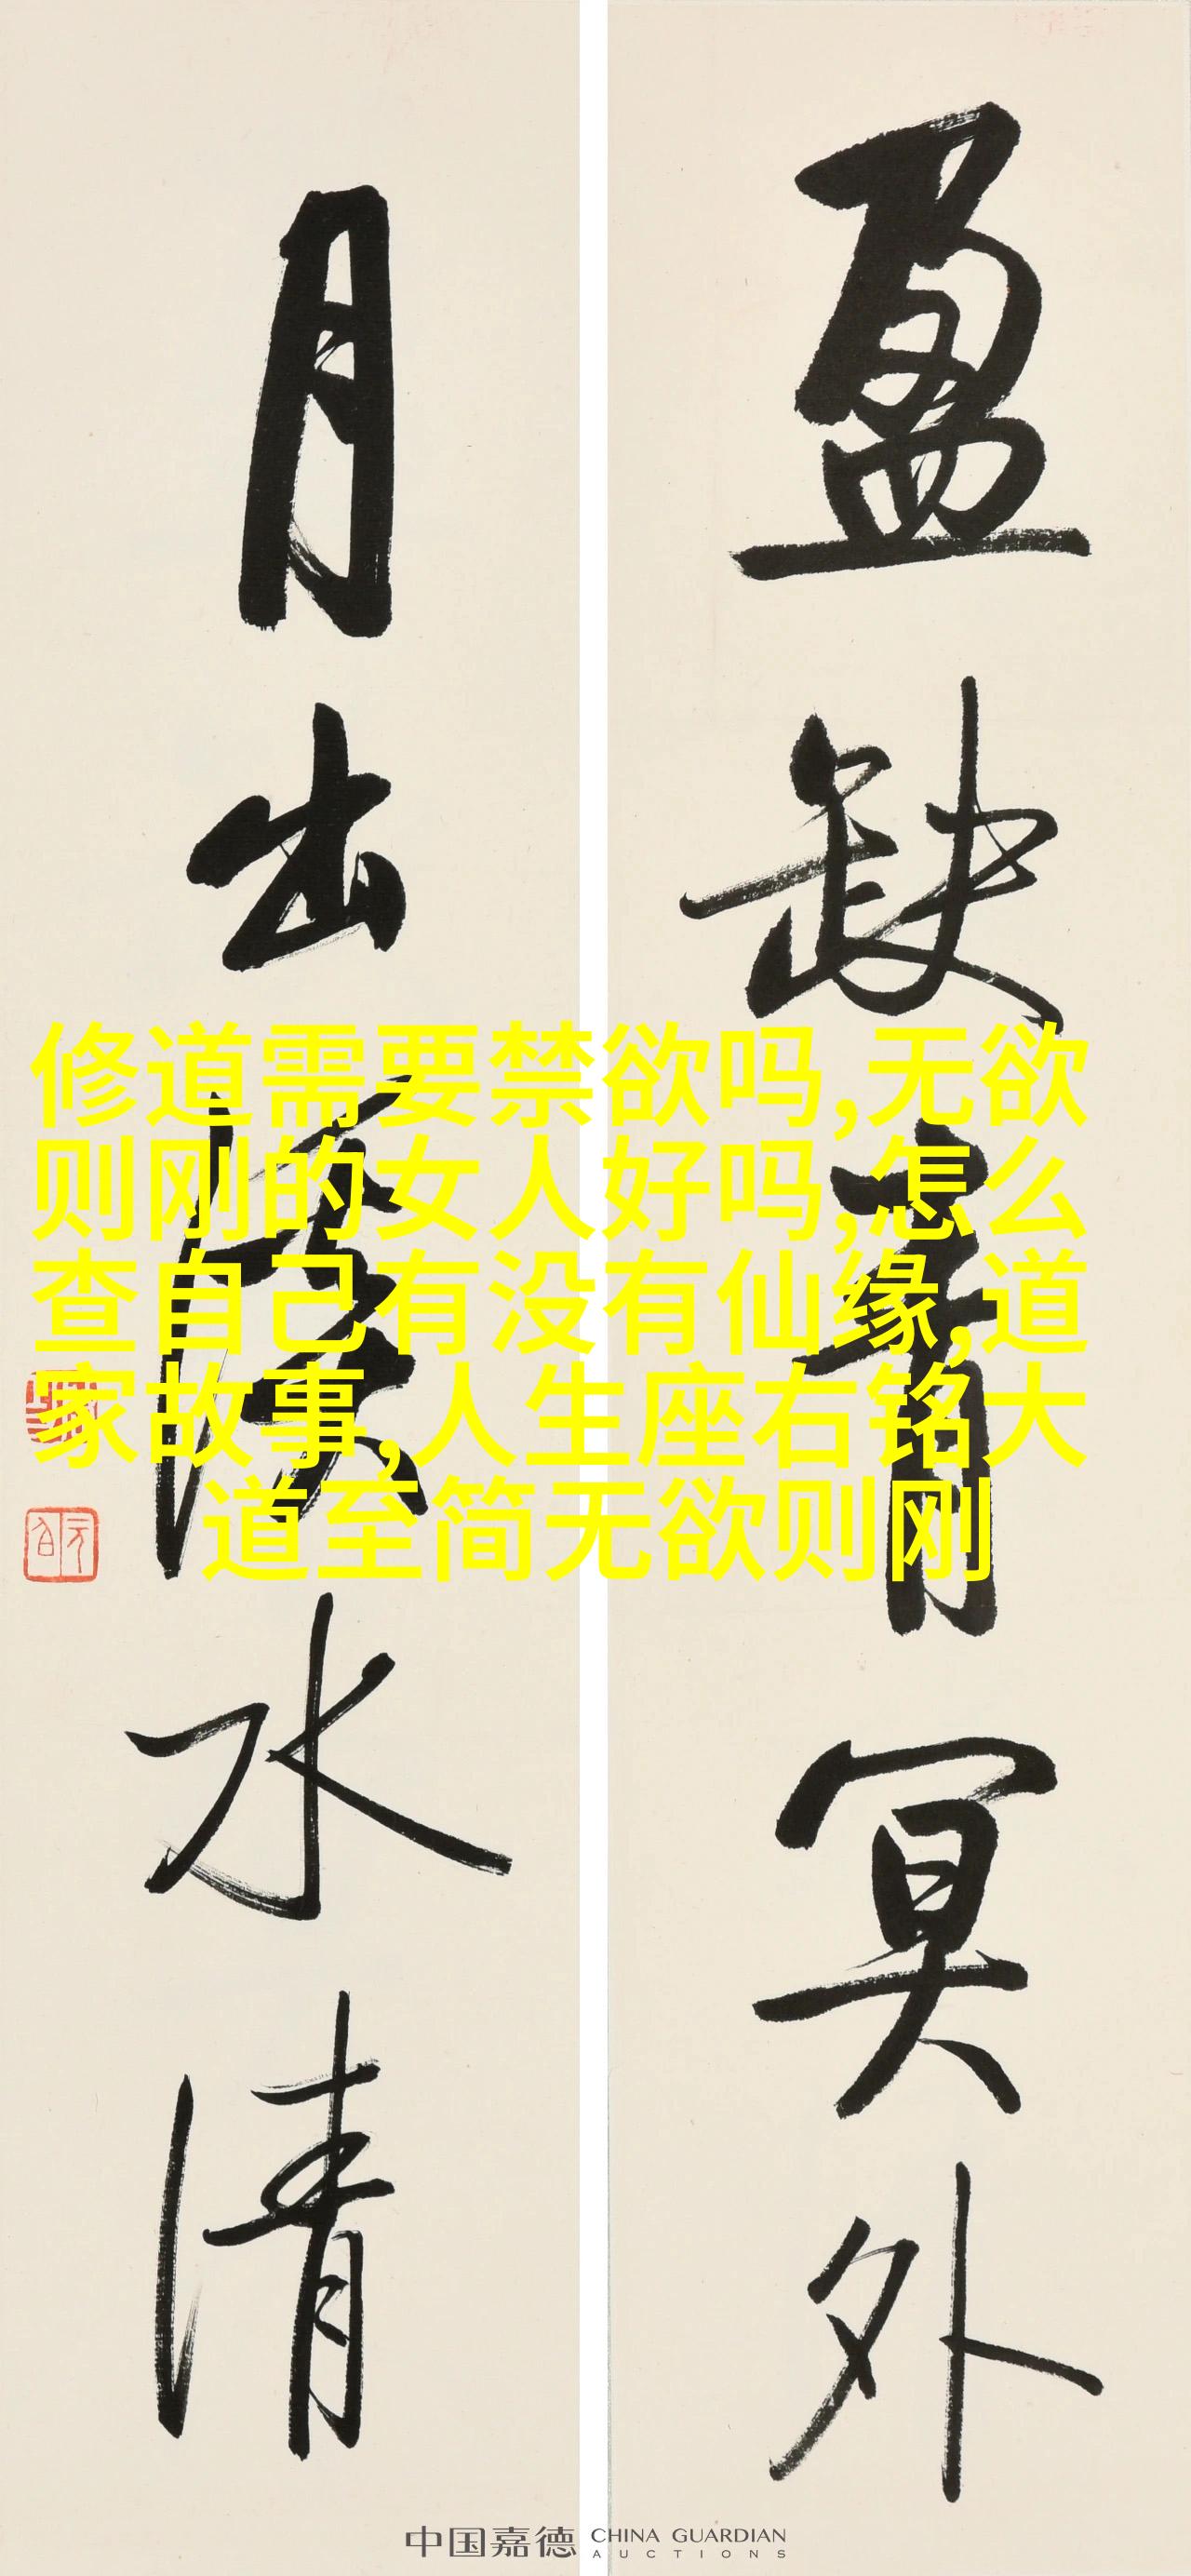 盈缺青冥外
月出水清
修道需要禁欲吗,无欲
则刚的女人好吗,怎么
查自己有没有仙缘,道
家故事,人生座右铭大
道至简无欲则刚
中国嘉德 CHINA GUARDIAN
AUCTIONS